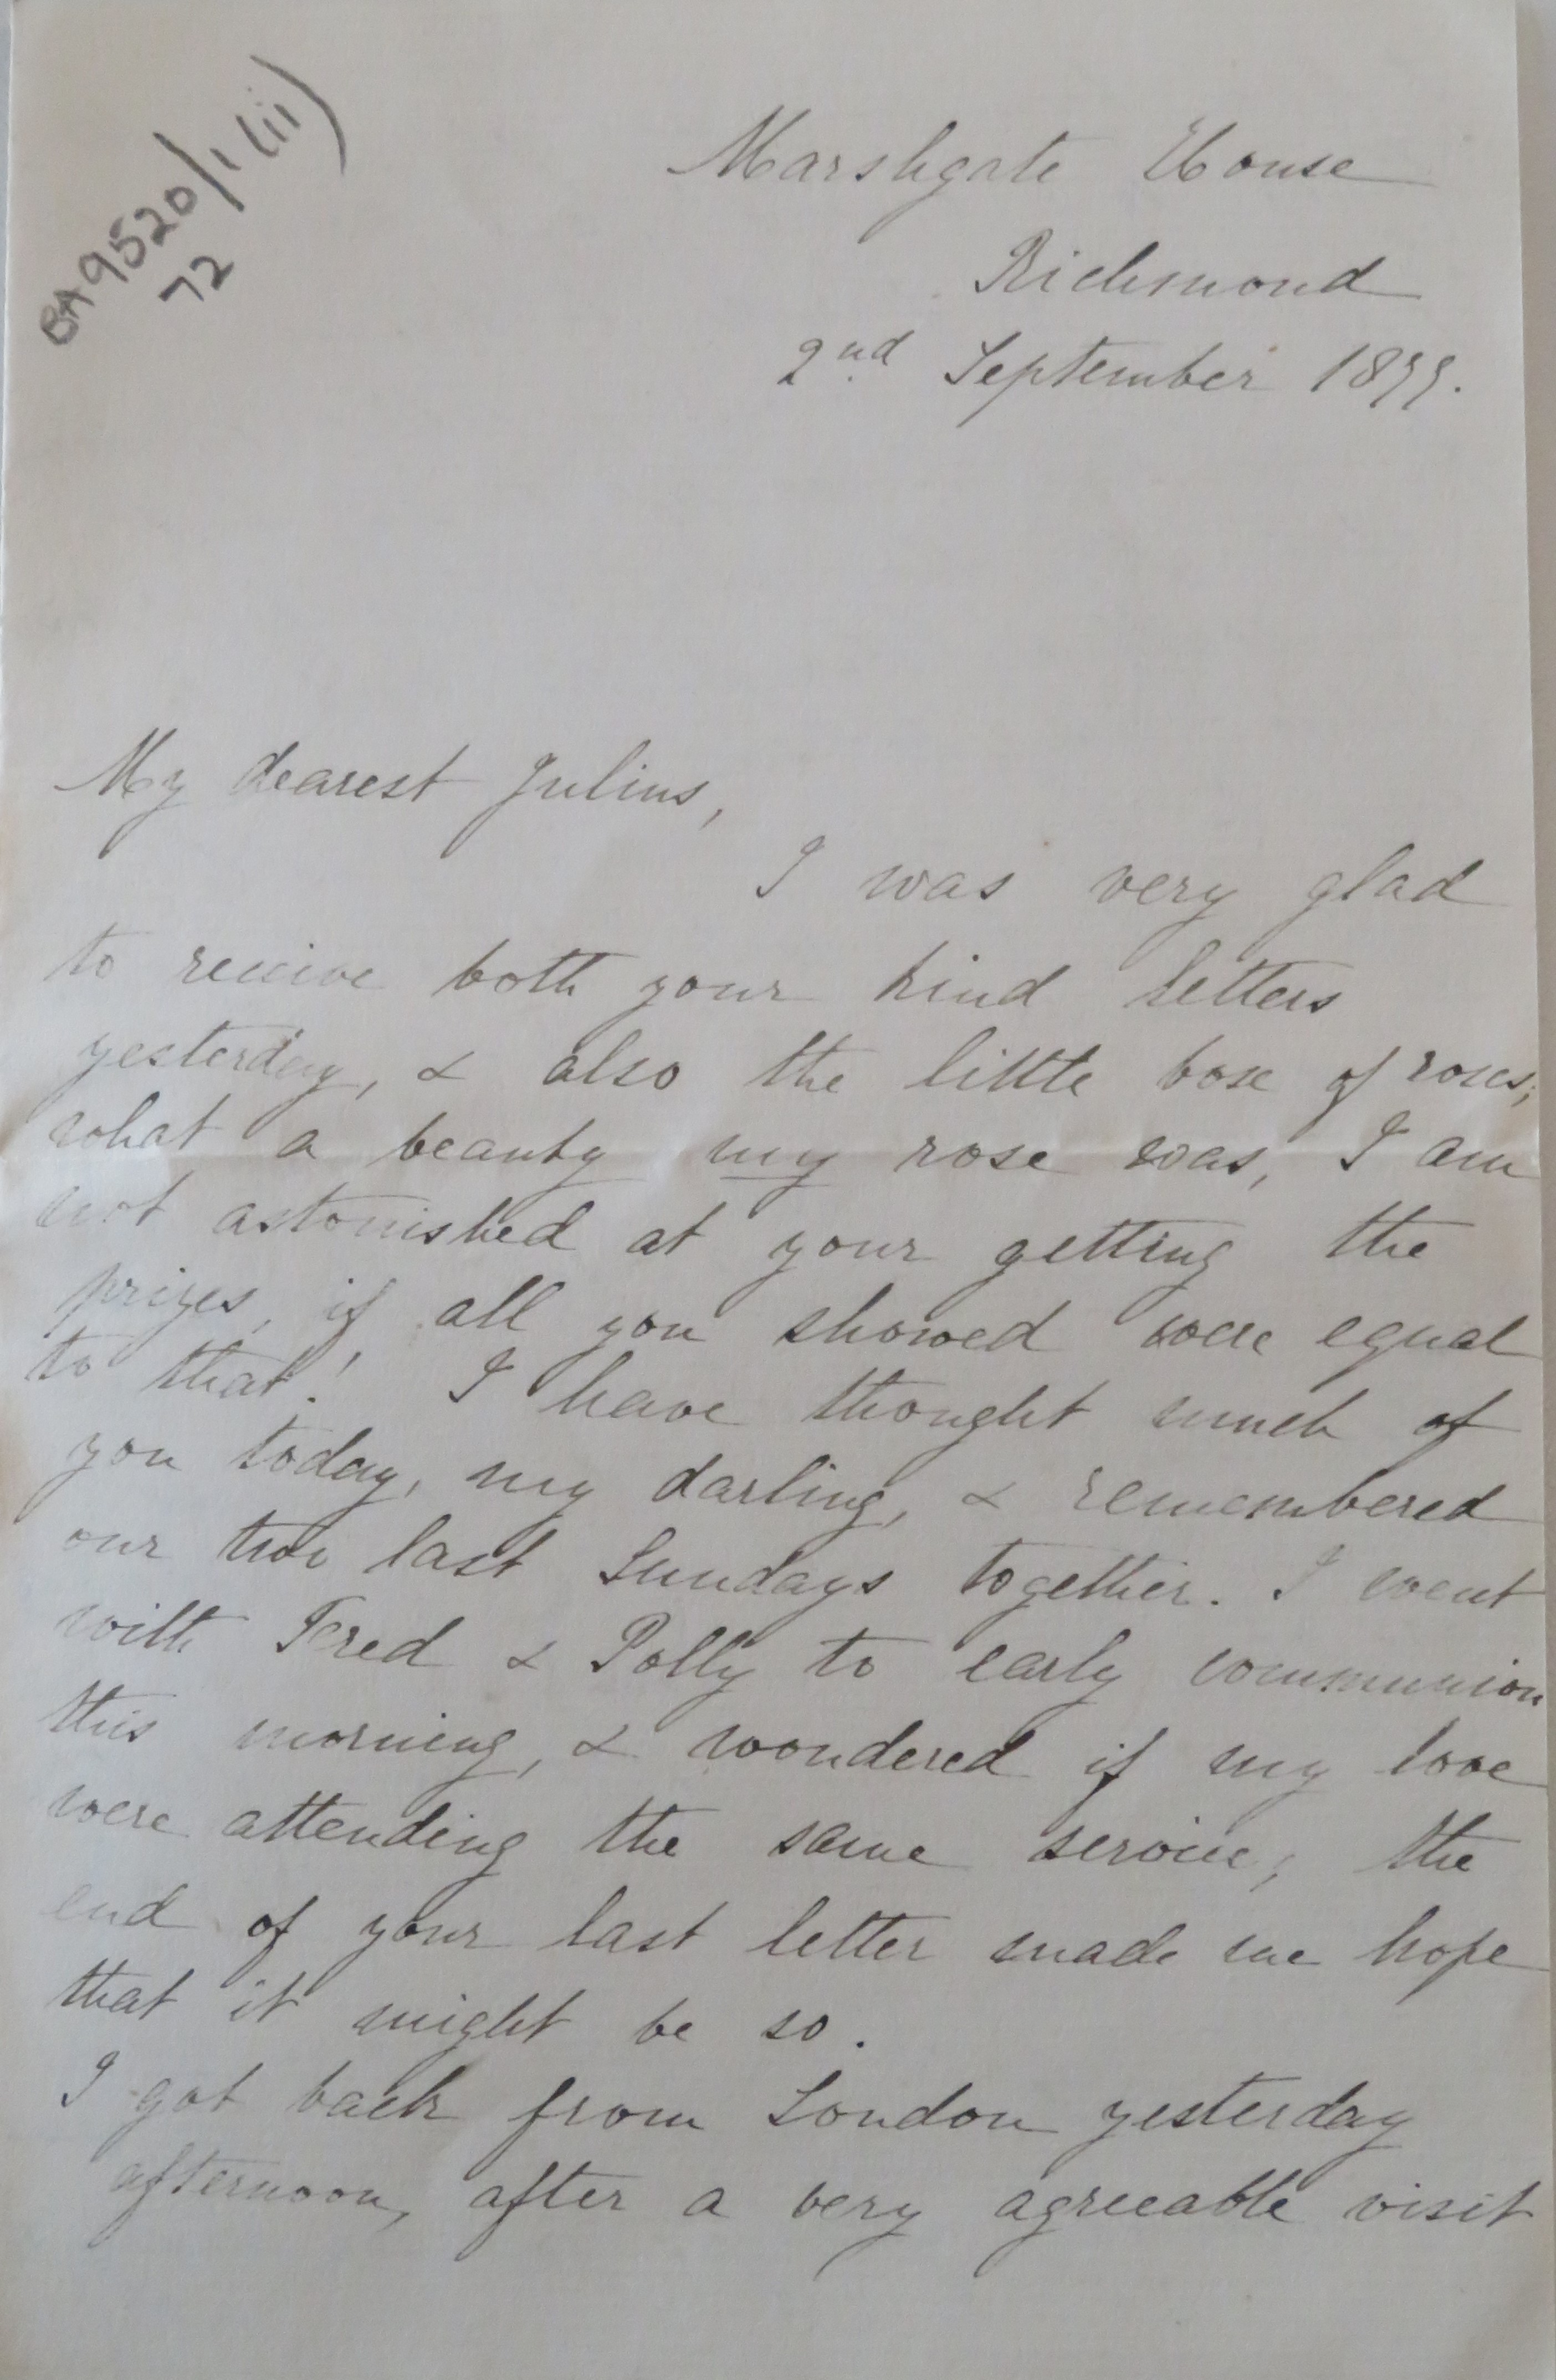 BA9520/1(ii)
72
Marshgate House
Richmond
2nd September 1877.
My dearest Julius,
I was very glad
to receive both your kind letters
yesterday, & also the little box of roses;
what a beauty my rose was, I am
not astonished at your getting the
prizes, if all you showed were equal
to that! I have thought much of
you today, my darling, & remembered
our two last Sundays together. I went
with Fred & Polly to early communion
this morning, & wondered if my love
were attending the same service; the
end of your last letter made me hope
that it might be so.
I got back from London yesterday
afternoon, after a very agreeable visit